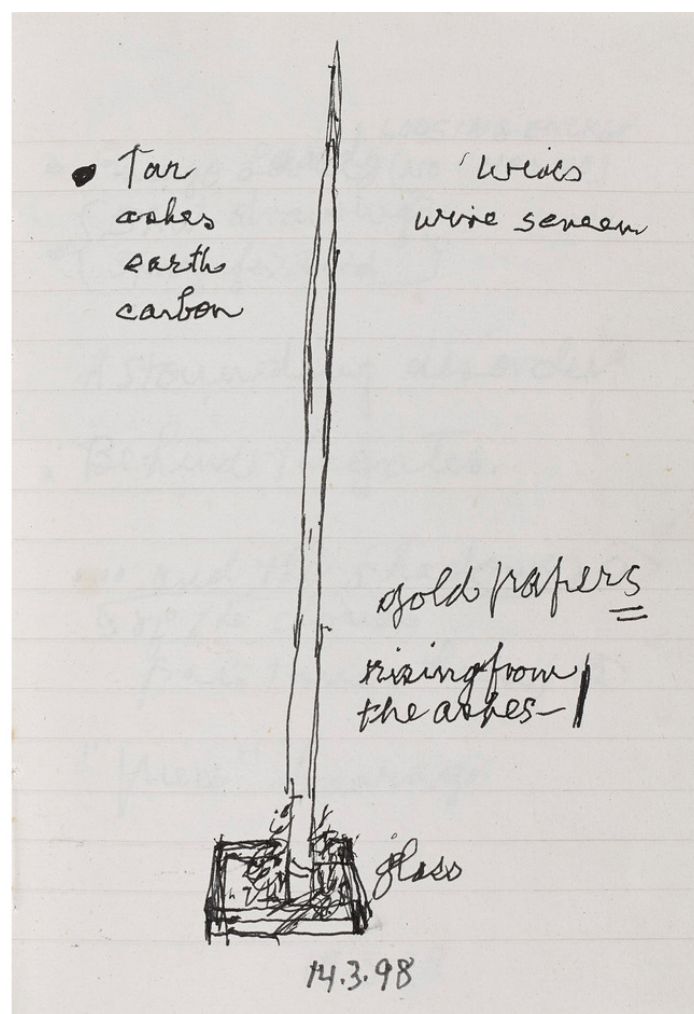 Tar
ashes
earth
carbon
wire screen
gold papers
rising from
the ashes –
glass
14.3.98